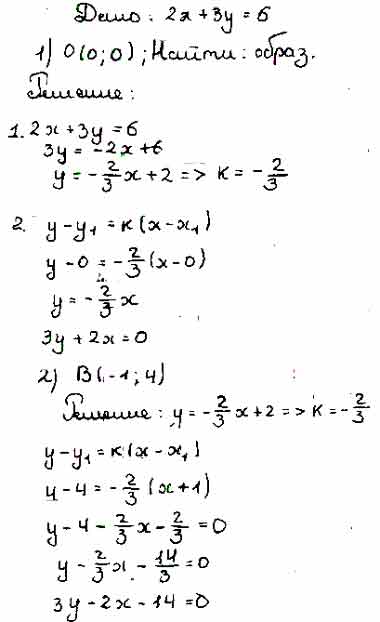 Дано: 2x+3y=6
1) O(0;0); Найти: образ.
Решение:
1. 2x+3y=6
3y=-2x+6
y=-2/3x+2 => K=-2/3
2. y-y₁=K(x-x₁)
y-0=-2/3(x-0)
y=-2/3x
3y+2x=0
2) B(-1;4)
Решение: y=-2/3x+2=>K=-2/3
y-y₁=K(x-x₁)
y-4=-2/3(x+1)
y-4-2/3x-2/3=0
y-2/3x-14/3=0
3y-2x-14=0